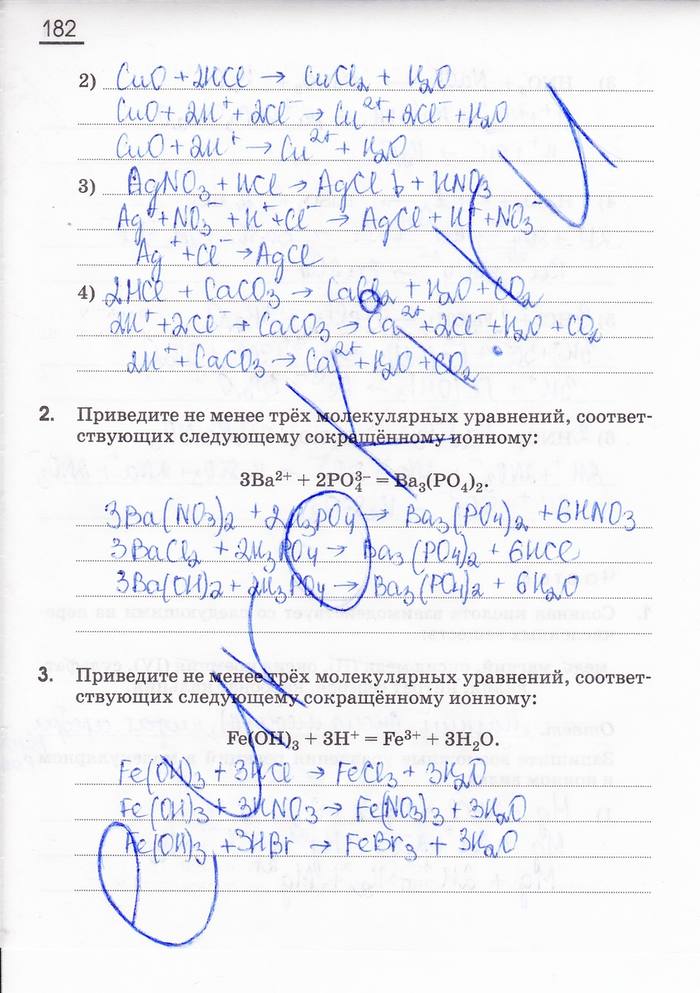 182
2) CuO + 2HCl → CuCl₂ + H₂O
CuO + 2H⁺ + 2Cl⁻ → Cu²⁺ + 2Cl⁻ + H₂O
CuO + 2H⁺ → Cu²⁺ + H₂O
3) AgNO₃ + HCl → AgCl↓ + HNO₃
Ag⁺ + NO₃⁻ + H⁺ + Cl⁻ → AgCl + H⁺ + NO₃⁻
Ag⁺ + Cl⁻ → AgCl
4) 2HCl + CaCO₃ → CaCl₂ + H₂O + CO₂
2H⁺ + 2Cl⁻ + CaCO₃ → Ca²⁺ + 2Cl⁻ + H₂O + CO₂
2H⁺ + CaCO₃ → Ca²⁺ + H₂O + CO₂
2. Приведите не менее трёх молекулярных уравнений, соответ-
ствующих следующему сокращённому ионному:
3Ba²⁺ + 2PO₄³⁻ = Ba₃(PO₄)₂.
3Ba(NO₃)₂ + 2H₃PO₄ → Ba₃(PO₄)₂ + 6HNO₃
3BaCl₂ + 2H₃PO₄ → Ba₃(PO₄)₂ + 6HCl
3Ba(OH)₂ + 2H₃PO₄ → Ba₃(PO₄)₂ + 6H₂O
3. Приведите не менее трёх молекулярных уравнений, соответ-
ствующих следующему сокращённому ионному:
Fe(OH)₃ + 3H⁺ = Fe³⁺ + 3H₂O.
Fe(OH)₃ + 3HCl → FeCl₃ + 3H₂O
Fe(OH)₃ + 3HNO₃ → Fe(NO₃)₃ + 3H₂O
Fe(OH)₃ + 3HBr → FeBr₃ + 3H₂O